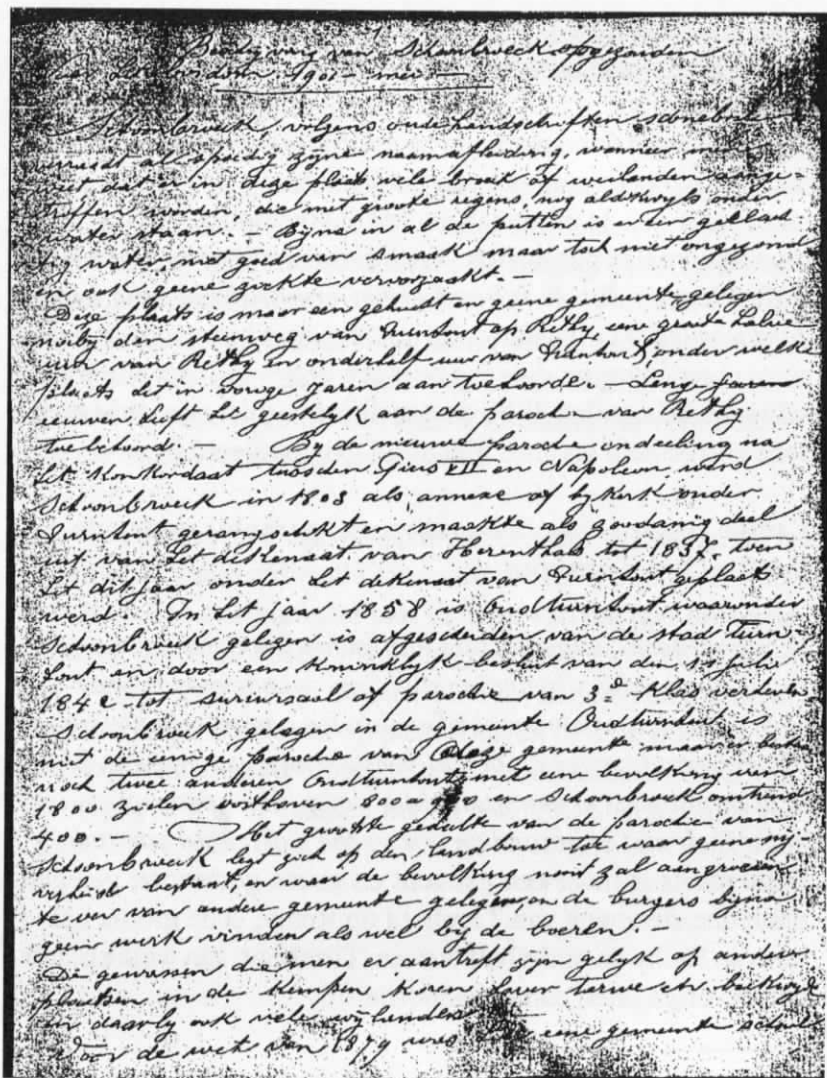 Schoonbroeck opgezonden
1901
Schoonbroeck, volgens oude handschriften
verraadt al spoedig zijne naamafleiding, wanneer men
weet dat er in deze plaats vele broek of weilanden aange-
troffen worden, die met groote regens, nog aldikwyls onder
water staan. — Bijna in al de putten is er een
water, niet goed van smaak maar toch niet ongezond
en ook geene ziekte veroorzaakt. —
Deze plaats is maar een gehucht en geene gemeente, gelegen
naby den steenweg van Turnhout op Rethy, eene groote halve
uur van Rethy en onderhalf uur van Turnhout, onder welke
plaats dit in vorige jaren aan toehoorde. — Lange jaren
eeuwen heeft het geestelyk aan de parochie van Rethy
toebehoord. — By de nieuwe parochie ondeeling na
het Konkordaat tusschen Pius VII en Napoleon werd
Schoonbroeck in 1803 als annexe of bykerk onder
Turnhout gerangschikt en maakte als zoodanig deel
uit van het dekenaat van Herenthals tot 1837, toen
het dit jaar onder het dekenaat van Turnhout geplaats
werd. In het jaar 1858 is Oudturnhout waaronder
Schoonbroeck gelegen is afgescheiden van de stad Turn-
hout en door een Koninklyk besluit van den 11 juli
1842 tot succursaal of parochie van 3e Klas verheven
Schoonbroeck gelegen in de gemeente Oudturnhout is
niet de eenige parochie van deze gemeente maar er
noch twee anderen Oudturnhout met eene bevolking van
1800 zielen 800 a 900 en Schoonbroeck omtrend
400. — Het grootste gedeelte van de parochie van
Schoonbroeck legt zich op den landbouw toe waar geene ny-
verheid bestaat, en waar de bevolking nooit zal aangroeien
te ver van andere gemeente gelegen, en de burgers byna
geen werk vinden als wel bij de boeren. —
De gewassen die men er aantreft zijn gelyk op andere
plaatsen in de Kempen Koren haver terwe en boekwyt
en daarby ook vele wylanden
Voor de wet van 1879 was hier eene gemeente school